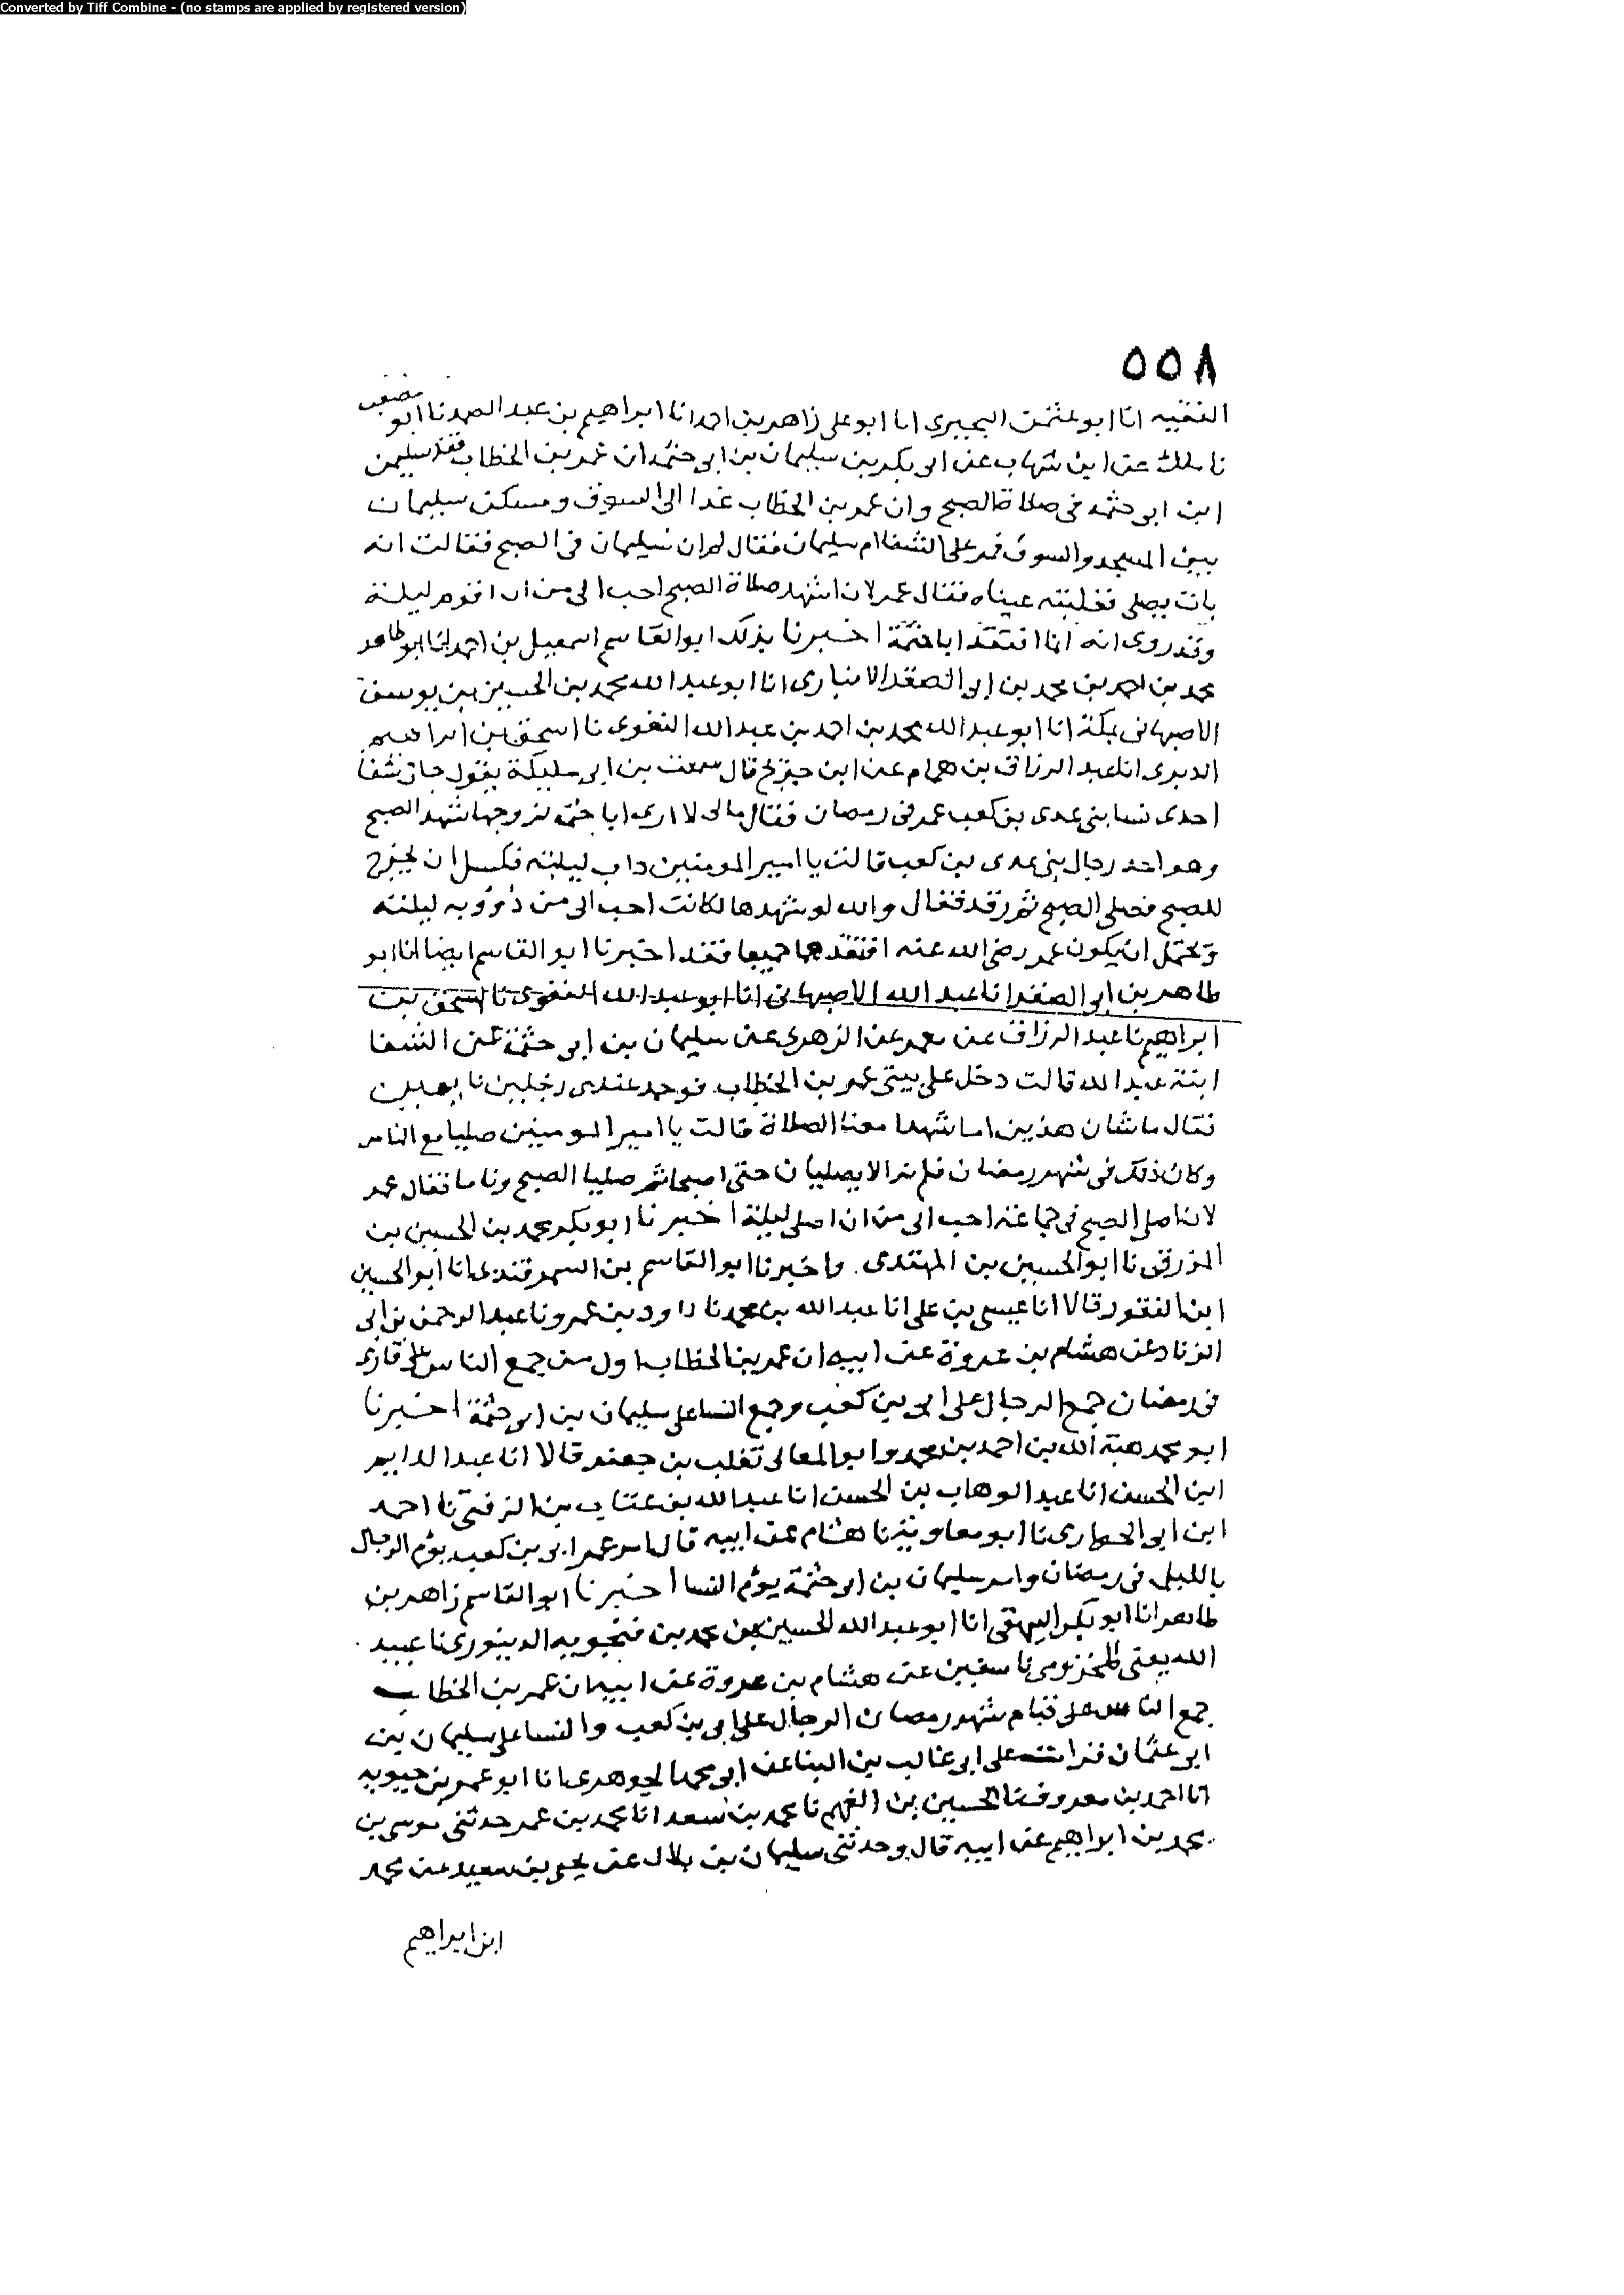 Converted by Tiff Combine - (no stamps are applied by registered version)
٥٥٨
الفقيه انا ابو عثمن البحيري انا ابو على زاهر بن احمد انا ابراهيم بن عبد الصمد نا ابو مصعب
نا ملك عن ابن شهاب عن ابى بكر بن سليمان بن ابى حثمه ان عمر بن الخطاب فقد سليمن
ابن ابى حثمه فى صلاة الصبح وان عمر بن الخطاب غدا الى السوق ومسكن سليمان
بين المسجد والسوق فمر على الشفا ام سليمان فقال لم ار سليمان فى الصبح فقالت انه
بات يصلى فغلبته عيناه فقال عمر لان اشهد صلاة الصبح احب الى من ان اقوم ليلة
وقد روى انه انما افتقد ابا حثمة اخبرنا بذلك ابو القاسم اسمعيل بن احمد انا ابو طاهر
محمد بن احمد بن محمد بن ابى الصقر الانبارى انا ابو عبد الله محمد بن الحسين بن يوسف
الاصبهانى بمكة انا ابو عبد الله محمد بن احمد بن عبد الله النقوى نا اسحق بن ابراهيم
الدبرى انا عبد الرزاق بن همام عن ابن جريج قال سمعت بن ابى مليكة يقول جات شفا
احدى نسا بنى عدى بن كعب عمر فى رمضان فقال مالى لا ارى ابا حثمه لزوجها شهد الصبح
وهو احد رجال بنى عدى بن كعب قالت يا امير المومنين داب ليلته فكسل ان يخرج
للصبح فصلى الصبح ثم رقد فقال والله لو شهدها لكانت احب الى من دؤوبه ليلته
وتحتمل ان يكون عمر رضى الله عنه افتقدهما جميعا فقد اخبرنا ابو القاسم ايضا انا ابو
طاهر بن ابى الصقر انا عبد الله الاصبهانى انا ابو عبد الله النقوى نا اسحق بن
ابراهيم نا عبد الرزاق عن معمر عن الزهرى عن سليمان بن ابى حثمة عن الشفا
ابنة عبد الله قالت دخل على بيتى عمر بن الخطاب فوجد عندى رجلين نايمين
فقال ما شان هذين اما شهدا معنا الصلاة قالت يا امير المومنين صليا مع الناس
وكان ذلك فى شهر رمضان فلم يزالا يصليان حتى اصبحا ثم صليا الصبح وناما فقال عمر
لان اصلى الصبح فى جماعة احب الى من ان اصلى ليلة اخبرنا ابو بكر محمد بن الحسين بن
المزرقى نا ابو الحسين بن المهتدى. واخبرنا ابو القاسم بن السمرقندى انا ابو الحسين
ابن النقور قالا انا عيسى بن على انا عبد الله بن محمد نا داود بن عمرو نا عبد الرحمن بن ابى
الزناد عن هشام بن عروة عن ابيه ان عمر بن الخطاب اول من جمع الناس على قارئ
فى رمضان جمع الرجال على ابى بن كعب وجمع النسا على سليمان بن ابى حثمة اخبرنا
ابو محمد هبة الله بن احمد بن محمد وابو المعالى تغلب بن جعفر قالا انا عبد الدايم
ابن الحسن انا عبد الوهاب بن الحسن انا عبد الله بن عتاب بن الزفتى نا احمد
ابن ابى الحوارى نا ابو معاوية نا هشام عن ابيه قال امر عمر ابى بن كعب يؤم الرجال
بالليل فى رمضان وامر سليمان بن ابى حثمة يؤم النسا اخبرنا ابو القاسم زاهر بن
طاهر انا ابو بكر البيهقى انا ابو عبد الله الحسين بن محمد بن فنجويه الدينورى نا عبيد
الله يعنى المخزومى نا سفين عن هشام بن عروة عن ابيه ان عمر بن الخطاب
جمع الناس على قيام شهر رمضان الرجال على ابى بن كعب والنسا على سليمان بن
ابى عثمان قراته على ابى غالب بن البنا عن ابى محمد الجوهرى انا ابو عمر بن حيويه
انا احمد بن معروف نا الحسين بن الفهم نا محمد بن سعد انا محمد بن عمر حدثنى موسى بن
محمد بن ابراهيم عن ابيه قال وحدثنى سليمان بن بلال عن يحيى بن سعيد عن محمد
ابن ابراهيم